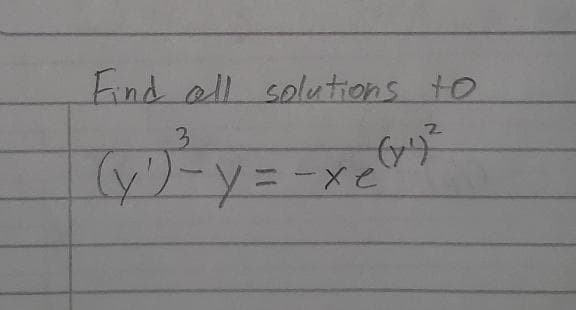 Find all solutions to
(y')³-y = -xe^(y')²